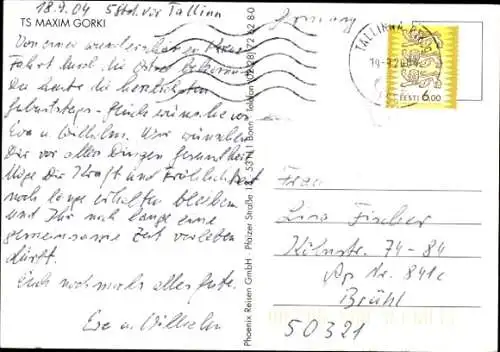 18.9.04 5 Std. vor Tallinn
TS MAXIM GORKI
Von einer wunderschönen
Fahrt durch die
Dir heute die herzlichsten
Geburtstags-Glückwünsche von
Eva u. Wilhelm. Wir wünschen
Dir vor allen Dingen Gesundheit
Möge Dir Kraft und Fröhlichkeit
noch lange erhalten bleiben
und Ihr noch lange eine
gemeinsame Zeit verleben
dürft.
Euch nochmals alles Gute.
Eva u. Wilhelm
Phoenix Reisen GmbH · Pfälzer Straße 14 · 53111 Bonn · Telefon
Germany
TALLINN
EESTI 6.00
Frau
Lina Fischer
Kölnstr. 74-84
Ap Nr. 841c
Brühl
50321